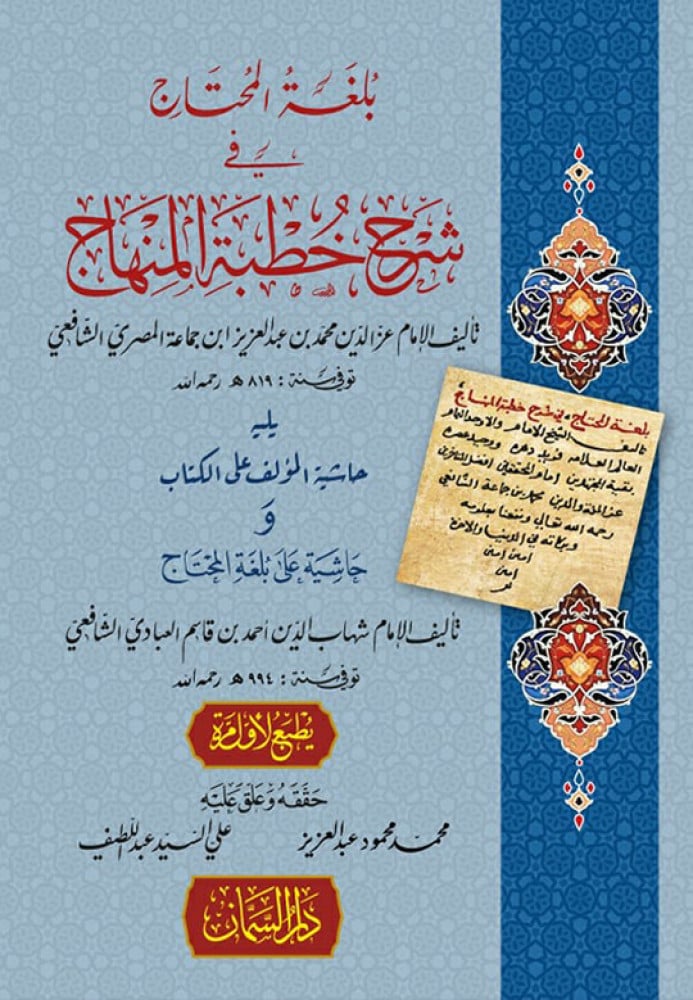 بُلغَةُ المُحتَاجِ
في
شَرحِ خُطبَةِ المِنهَاجِ
تأليف الإمام عز الدين محمد بن عبد العزيز ابن جماعة المصري الشافعي
توفي سنة : ٨١٩ هـ رحمه الله
يليه
حاشية المؤلف على الكتاب
و
حَاشِيَة عَلَى بُلغَةِ المُحتَاج
تأليف الإمام شهاب الدين أحمد بن قاسم العبادي الشافعي
توفي سنة : ٩٩٤ هـ رحمه الله
يُطبَعُ لأَوَّلِ مَرَّة
حَقَّقَهُ وَعَلَّقَ عَلَيْهِ
محمد محمود عبد العزيز
علي السيد عبد اللطيف
دَارُ السَّمَّان
بلغة المحتاج في شرح خطبة المنهاج
تأليف الشيخ الإمام والأوحد الهمام
العالم العلامه فريد دهره ووحيد عصره
بقية المجتهدين إمام المحققين افضل المتأخرين
عز الملة والدين محمد بن جماعة الشافعي
رحمه الله تعالى ونفعنا بعلومه
وبركاته في الدنيا والاخرة
امين امين
امين